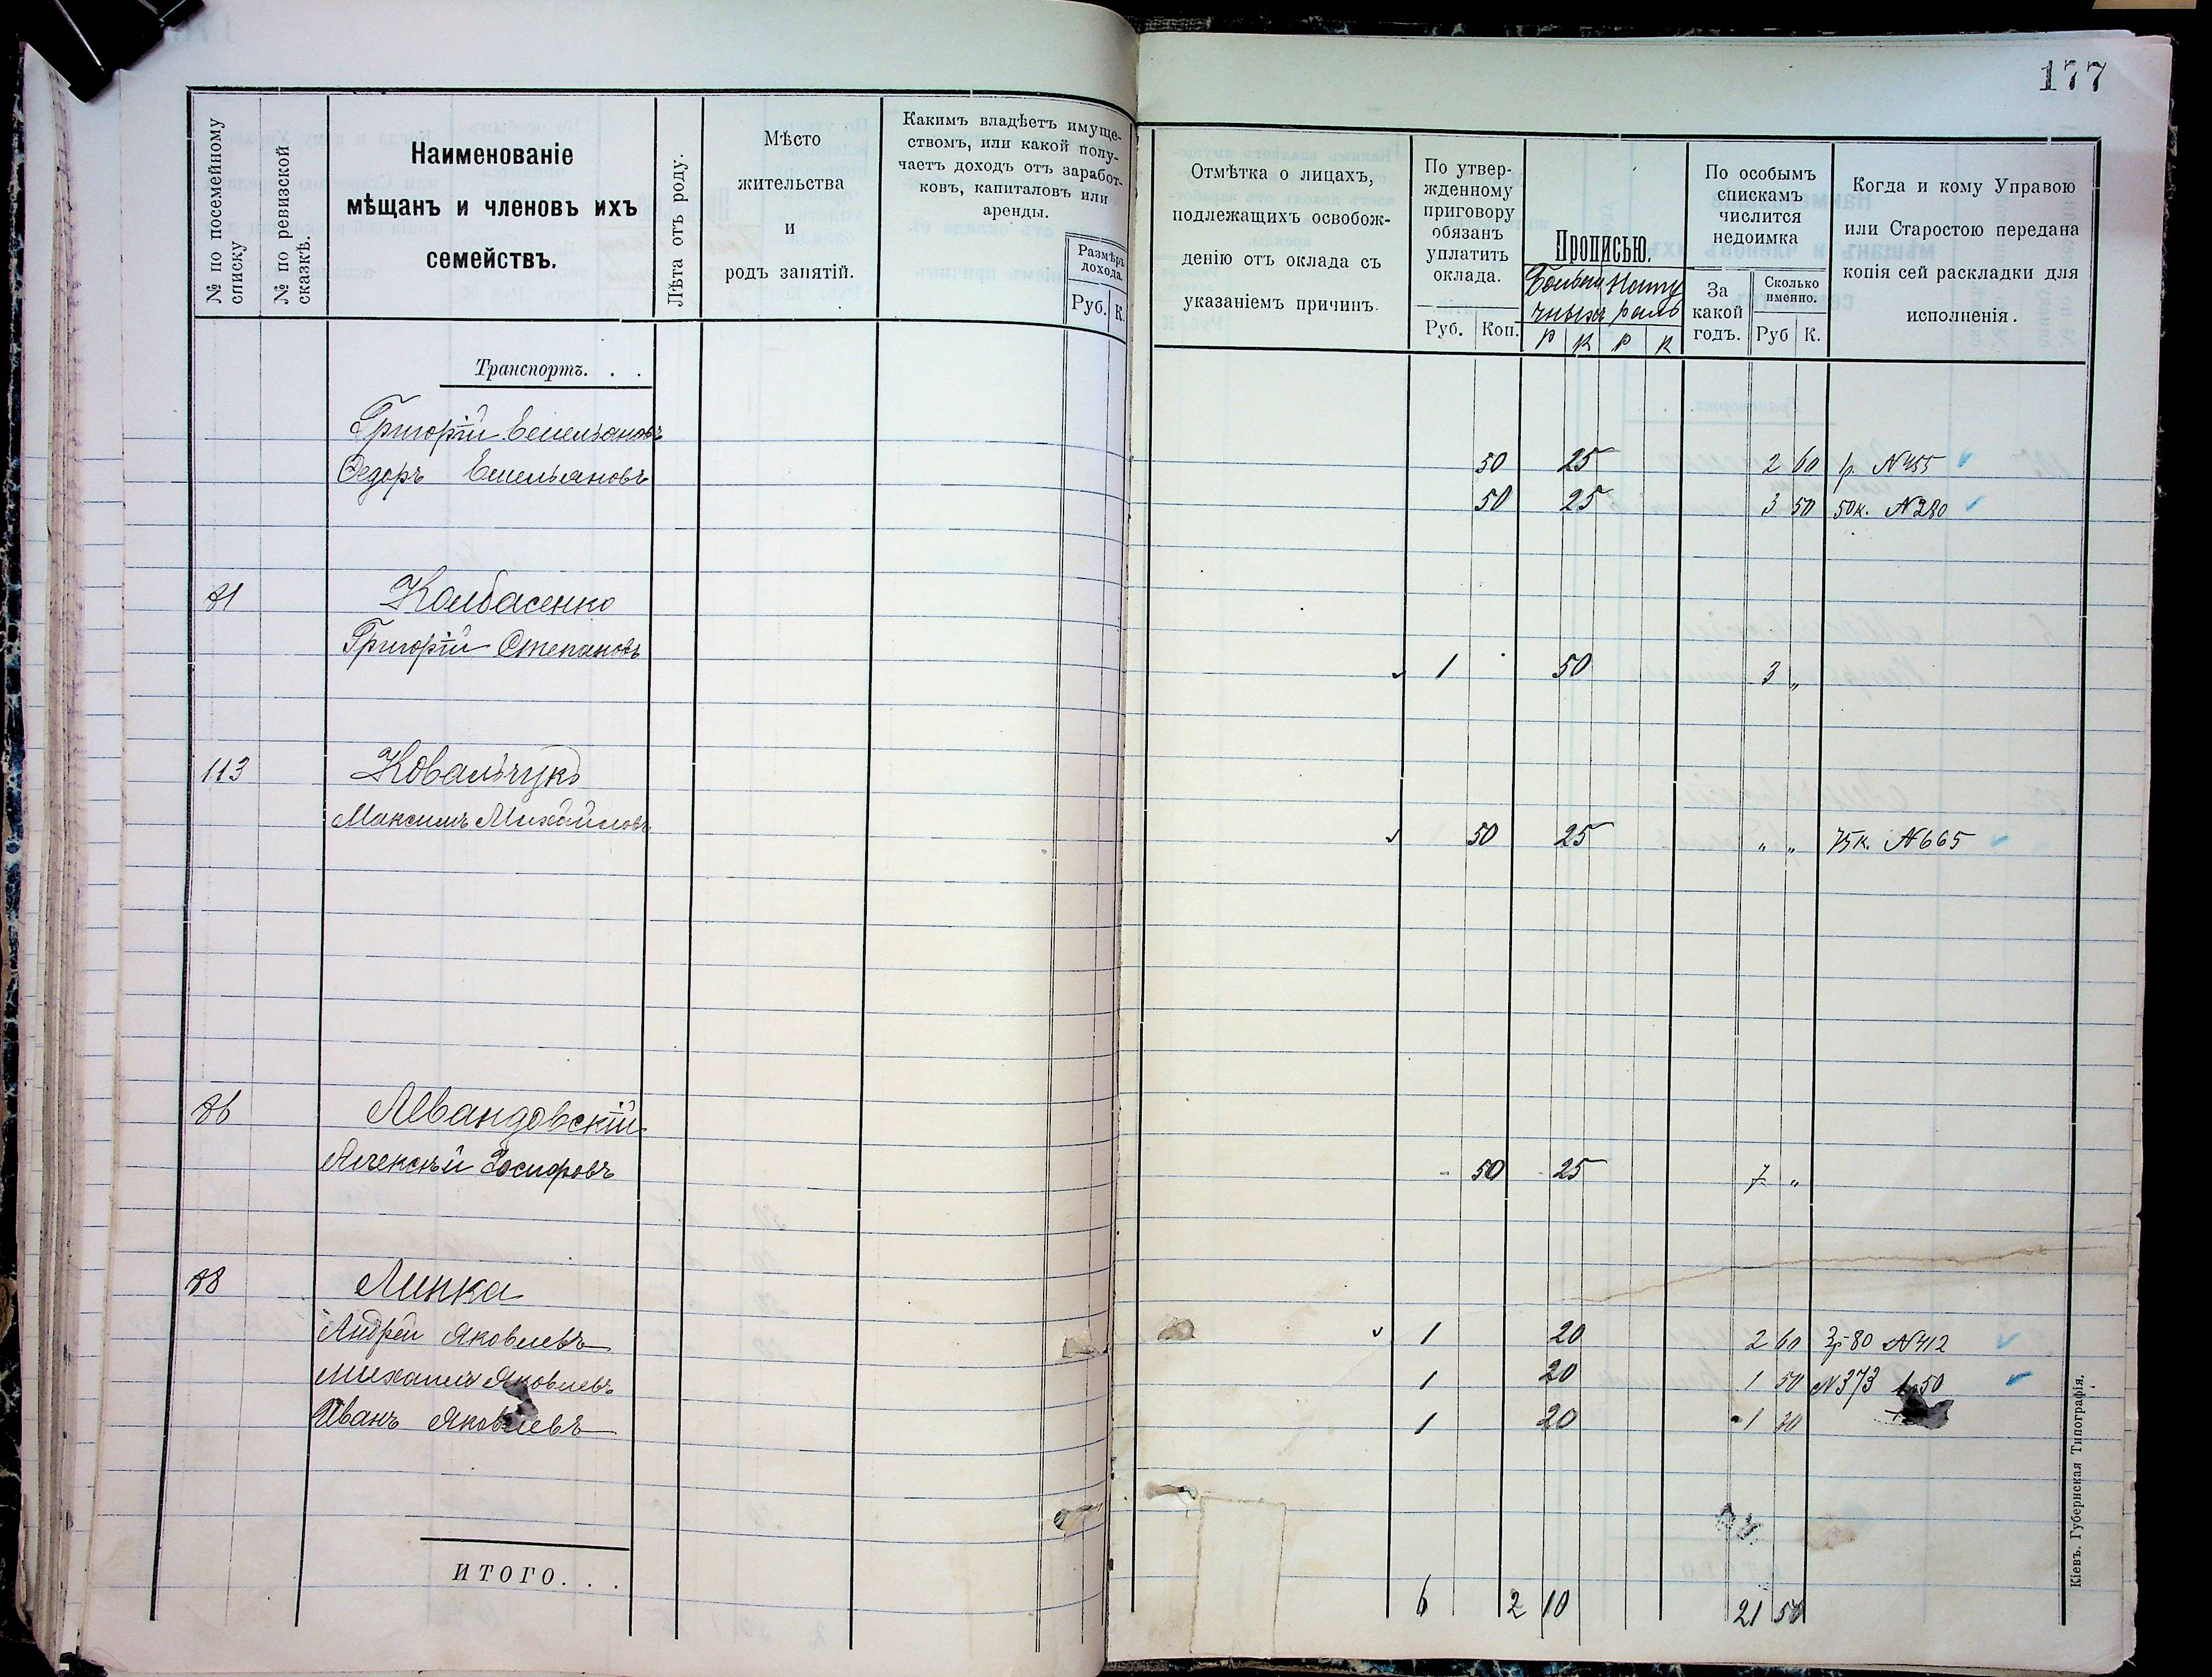 177
№ по посемейному списку
№ по ревизской сказкѣ.
Наименованіе
мѣщанъ и членовъ ихъ
семействъ.
Лѣта отъ роду.
Мѣсто
жительства
и
родъ занятій.
Какимъ владѣетъ имуще-
ствомъ, или какой полу-
чаетъ доходъ отъ заработ-
ковъ, капиталовъ или
аренды.
Размѣръ
дохода.
Руб. К.
Отмѣтка о лицахъ,
подлежащихъ освобож-
денію отъ оклада съ
указаніемъ причинъ.
По утвер-
жденному
приговору
обязанъ
уплатить
оклада.
Руб. Коп.
Прописью.
Р К Р К
По особымъ
спискамъ
числится
недоимка
За
какой
годъ.
Сколько
именно.
Руб К.
Когда и кому Управою
или Старостою передана
копія сей раскладки для
исполненія.
Транспортъ. . .
Григорій Емельяновъ 50 25 2 60 р. N455
Федоръ Емельяновъ 50 25 3 50 50к. N280
81 Колбасенко
Григорій Степановъ 1 50 3 "
113 Ковальчукъ
Максимъ Михайловъ 50 25 " " 75к. N665
86 Левандовскій
Алексѣй Іосифовъ 50 25 7 "
88 Липка
Андрей Яковлевъ 1 20 2 60 3р80 N412
Михаилъ Яковлевъ 1 20 1 50 N373 1.50
Иванъ Яковлевъ 1 20 1 30
ИТОГО. . .
6 2 10 21 50
Кіевъ. Губернская Типографія.